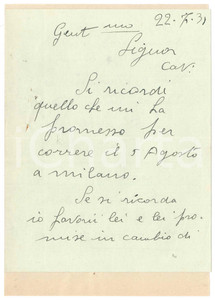 22-7-31
Gent mo
Signor
Cav.
Si ricordi
quello che mi ha
promesso per
correre il 5 Agosto
a milano.
Se si ricorda
io favorii lei e lei pro-
mise in cambio di